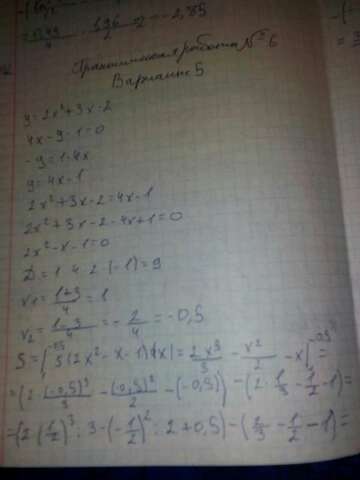 Практическая работа №6
Вариант 5
y=2x²+3x-2
4x-y-1=0
-y=1-4x
y=4x-1
2x²+3x-2=4x-1
2x²+3x-2-4x+1=0
2x²-x-1=0
D=1-4·2·(-1)=9
x₁=(1+3)/4=1
x₂=(1-3)/4=-2/4=-0,5
S=|∫(2x²-x-1)dx|=2x³/3-x²/2-x|=
=(2·(-0,5)³/3-(-0,5)²/2-(-0,5))-(2·1/3-1/2-1)=
=(2·(-1/2)³:3-(-1/2)²:2+0,5)-(2/3-1/2-1)=